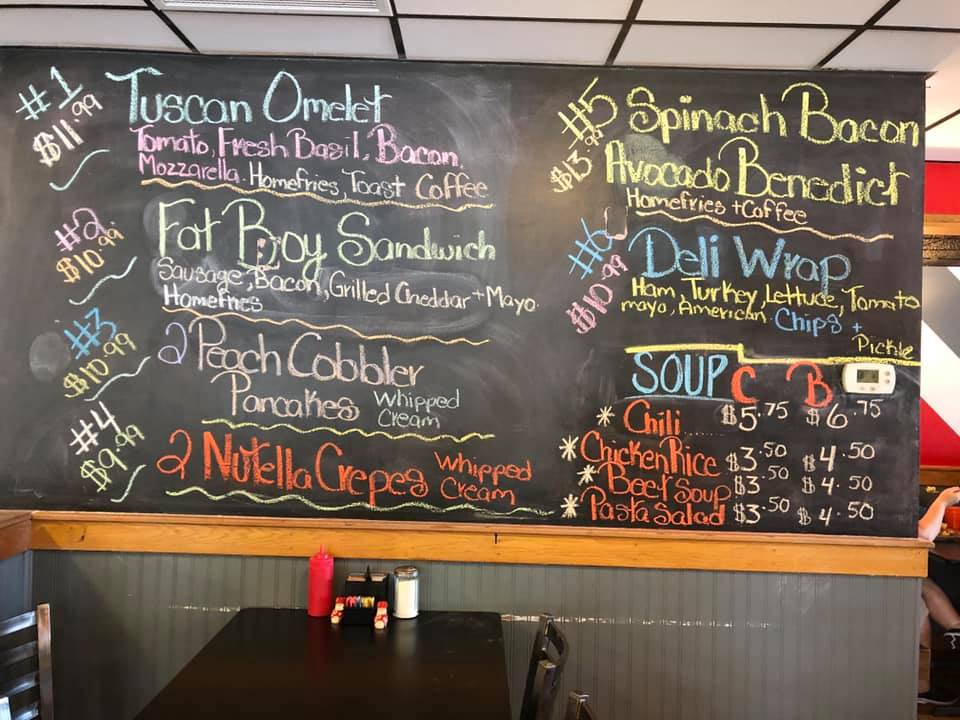 #1
$11.99
Tuscan Omelet
Tomato, Fresh Basil, Bacon,
Mozzarella. Homefries, Toast Coffee
#2
$10.99
Fat Boy Sandwich
Sausage, Bacon, Grilled Cheddar + Mayo.
Homefries
#3
$10.99
2 Peach Cobbler
Pancakes Whipped
Cream
#4
$9.99
2 Nutella Crepes Whipped
Cream
#5
$13.99
Spinach Bacon
Avocado Benedict
Homefries + Coffee
#6
$10.99
Deli Wrap
Ham, Turkey, Lettuce, Tomato
mayo, American. Chips +
Pickle
SOUP C B
* Chili ...... $5.75 $6.75
* Chicken Rice $3.50 $4.50
* Beet Soup $3.50 $4.50
* Pasta Salad $3.50 $4.50